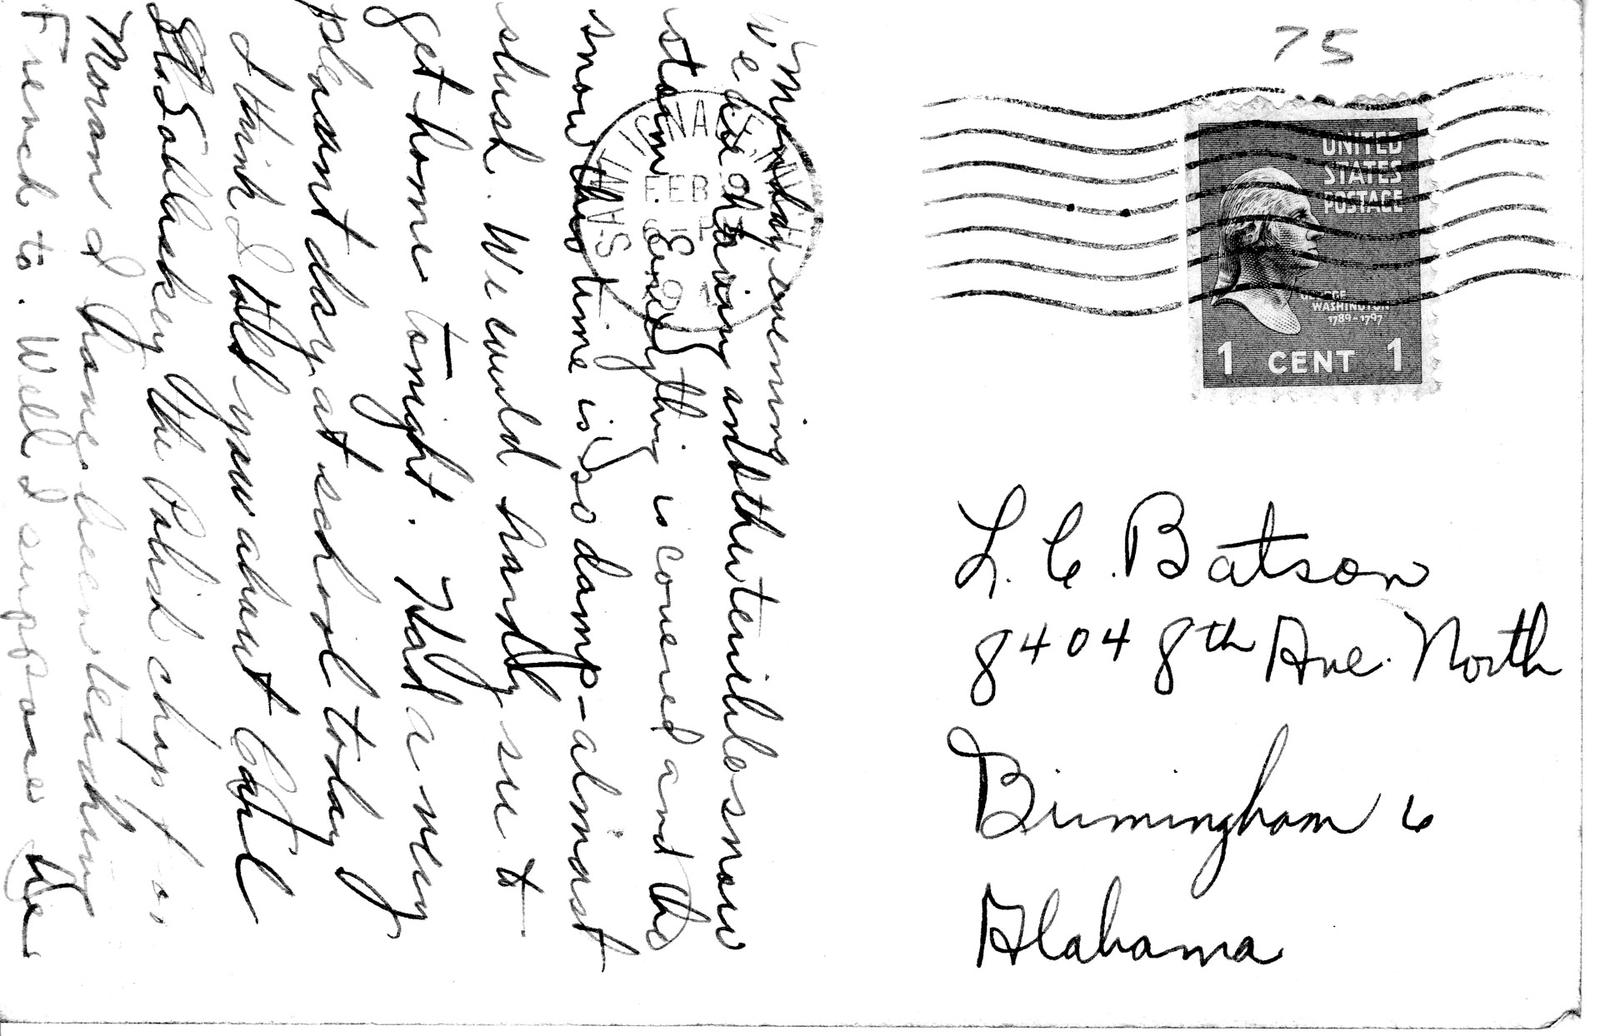 Monday evening
We are having another terrible snow
storm. Everything is covered and the
snow this time is so damp - almost
slush. We could hardly see to
get home tonight. Had a very
pleasant day at school today.
I think I told you about Carl
the Polish chap
Moran & I have been teaching
French to. Well I suppose he
75
SAINT IGNACE
FEB 9
6 - P
UNITED
STATES
POSTAGE
GEORGE
WASHINGTON
1789-1797
1 CENT 1
L. C. Batson
8404 8th Ave. North
Birmingham 6
Alabama